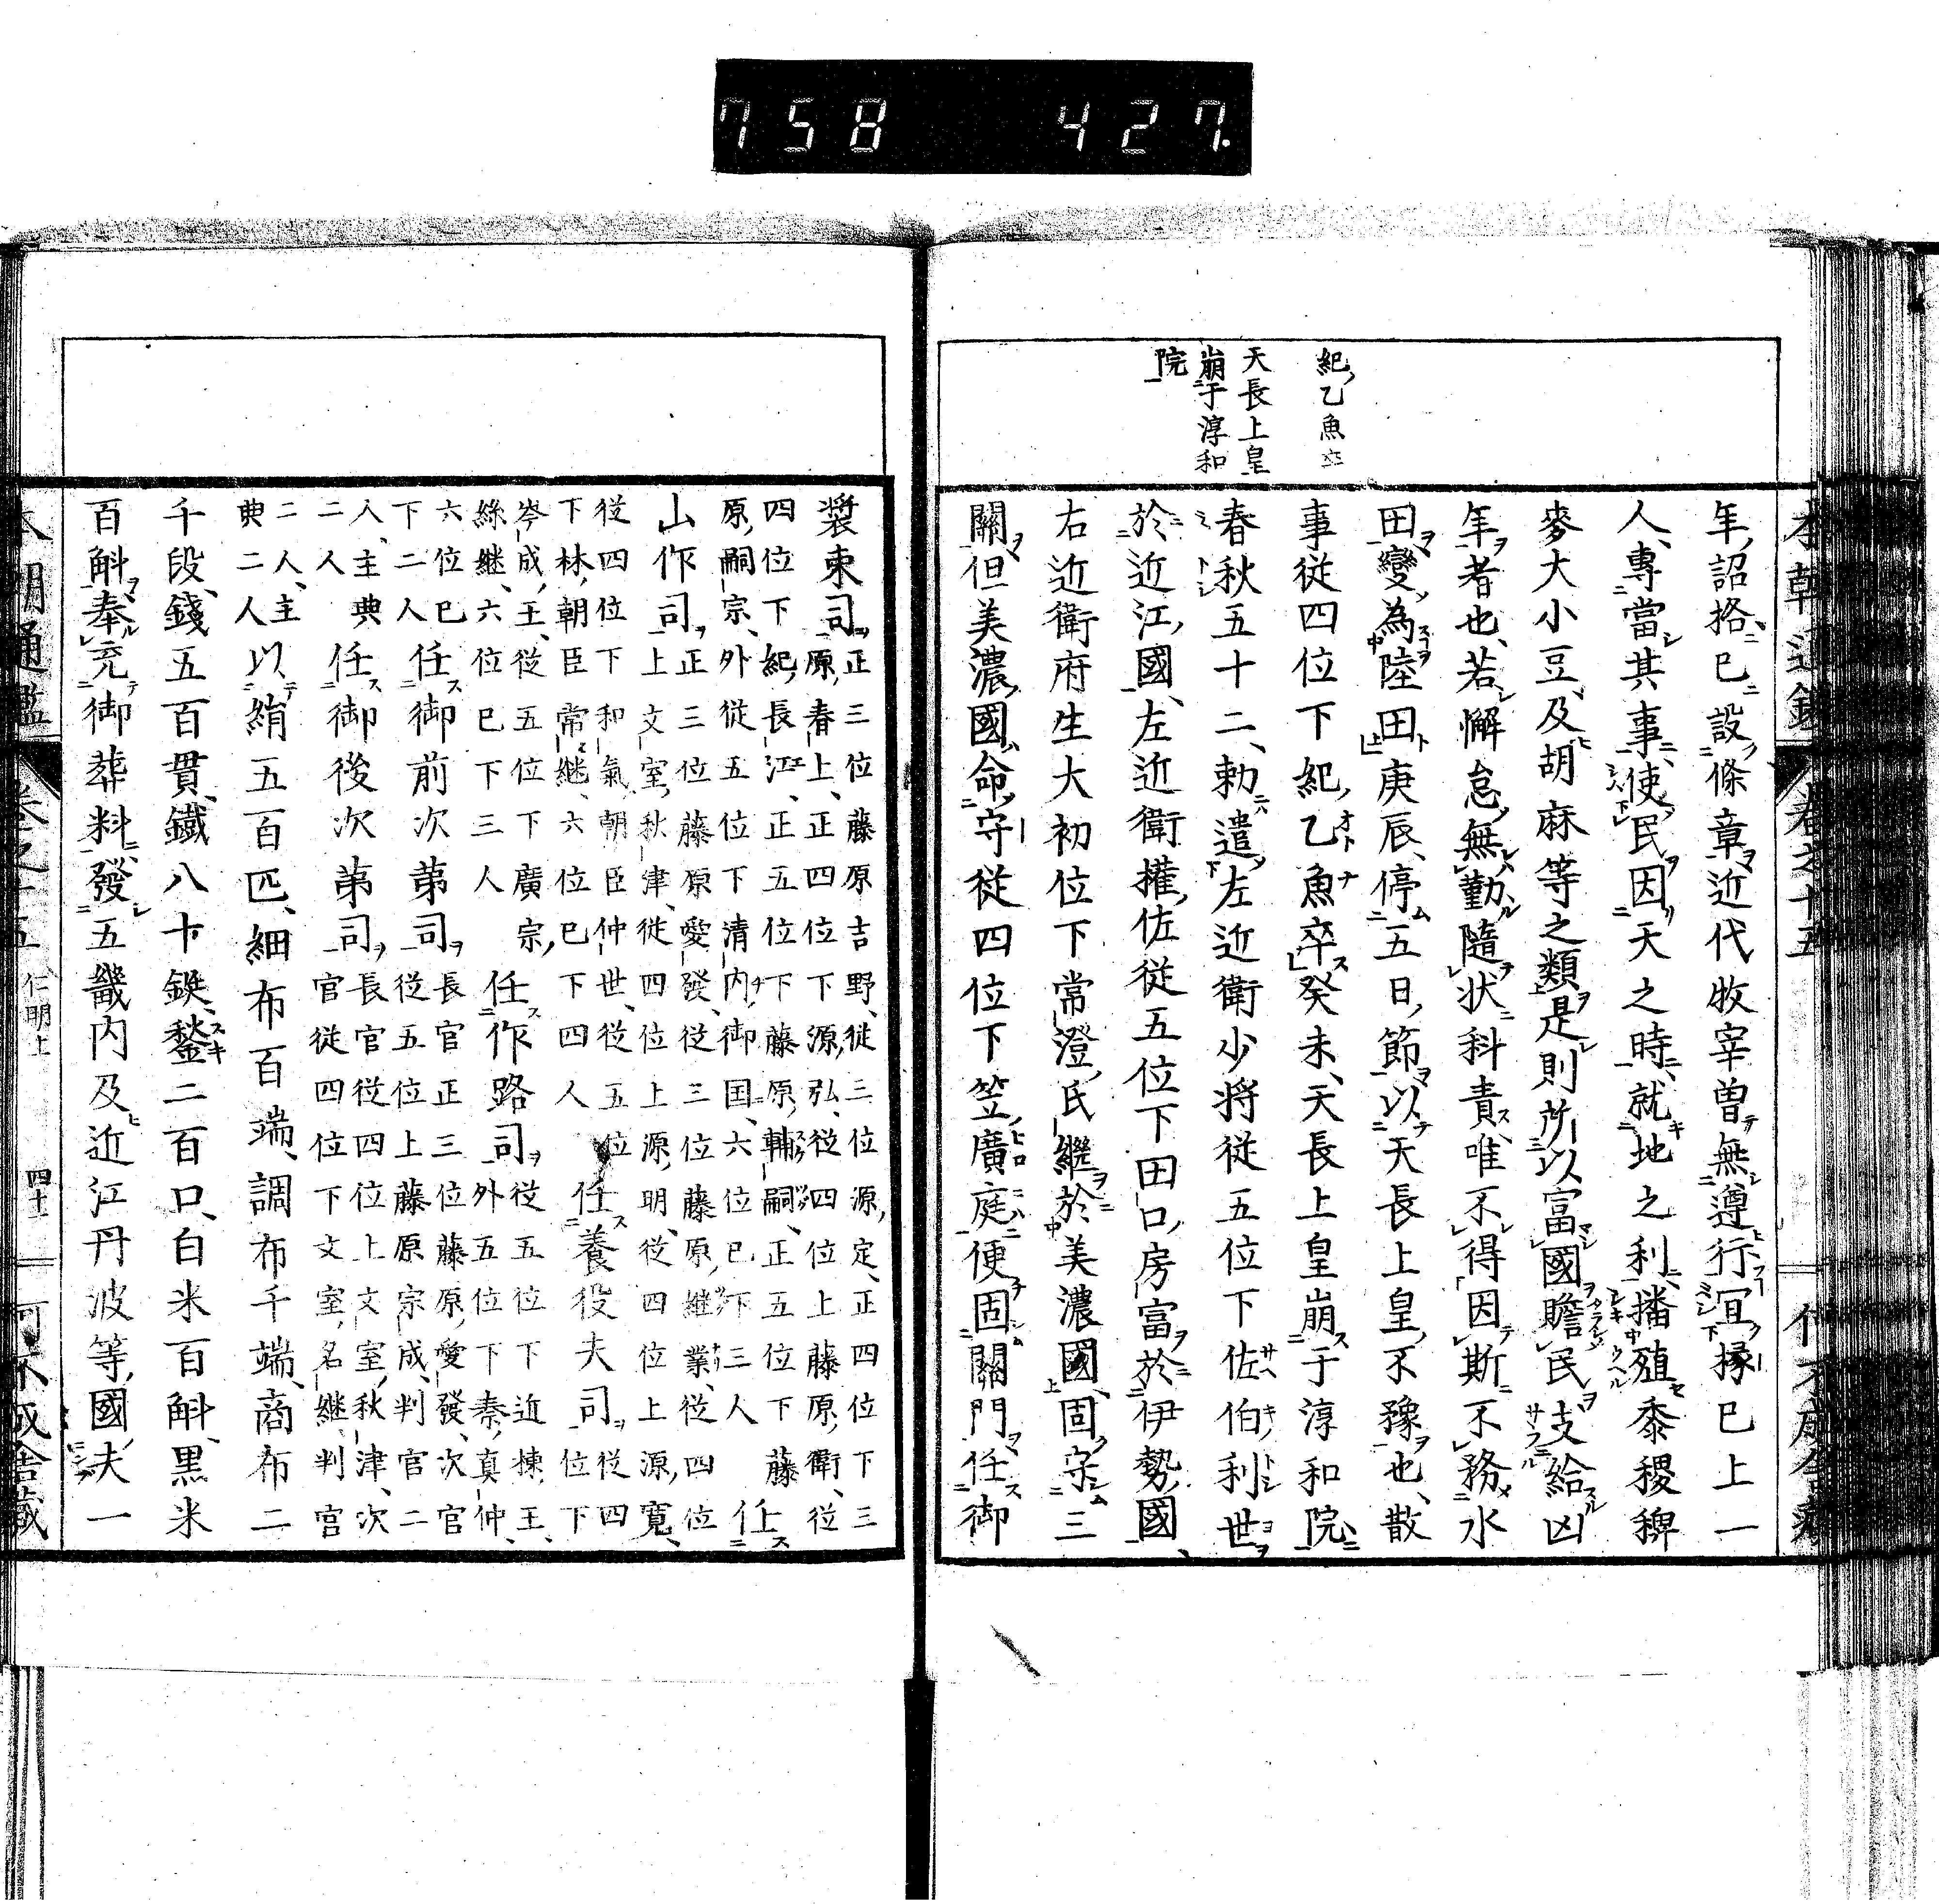 758 427.
紀乙魚卒
天長上皇
崩于淳和
院
年詔挌已設條章近代牧宰曽無遵行冝掾已上一
人專當其事使民因天之時就地之利播殖黍稷稗
麥大小豆及胡麻等之類是則所以富國贍民支給凶
年者也若懈怠無勤隨状科責唯不得因斯不務水
田變為陸田庚辰停五日節以天長上皇不豫也散
事從四位下紀乙魚卒癸未天長上皇崩于淳和院
春秋五十二勅遣左近衛少将従五位下佐伯利世
於近江國左近衛權佐従五位下田口房富於伊勢國
右近衛府生大初位下常澄氏繼於美濃國固守三
關但美濃國命守従四位下笠廣庭便固關門任御
装束司正三位藤原吉野従三位源定正四位下三
原春上正四位下源弘従四位上藤原衛従
四位下紀長江正五位下藤原輔嗣正五位下藤
原嗣宗外従五位下清内御国六位已下三人任
山作司正三位藤原愛發従三位藤原継業従四位
上文室秋津従四位上源明従四位上源寛
従四位下和氣朝臣仲世従五位
下林朝臣常継六位已下四人任養役夫司従四位下
岑成王従五位下廣宗
絲継六位已下三人任作路司従五位下近棟王
外五位下秦真仲
六位已
下二人任御前次第司長官正三位藤原愛發次官
従五位上藤原宗成判官二
人主典
二人任御後次第司長官従四位上文室秋津次
官従四位下文室名継判官
二人主
典二人以絹五百匹細布百端調布千端商布二
千段錢五百貫鐵八十鋌鍫二百口白米百斛黒米
百斛奉充御葬料發五畿内及近江丹波等國夫一
本朝通鑑 卷之十五 仁明上 四十一